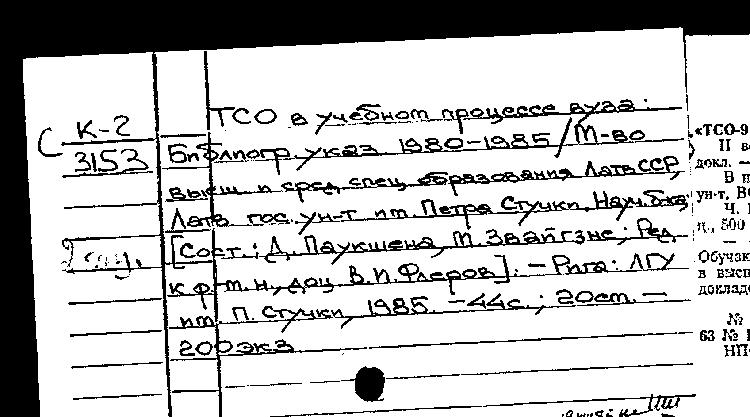 ТСО в учебном процессе вуза:
С К-2
3153
Библиогр. указ. 1980-1985 / М-во
высш. и сред. спец. образования ЛатвССР,
Латв. гос. ун-т им. Петра Стучки. Науч. б-ка;
[Сост.: Д. Паукшена, М. Звайгзне; Ред.
к.ф.-м.н., доц. В.И. Флеров]. - Рига: ЛГУ
им. П. Стучки, 1985. - 44с.; 20см. -
200 экз
«ТСО-9
II
докл. —
В
ун-т, В
Ч.
500
—
Обучак
в высш
доклад
№
63 №
НП